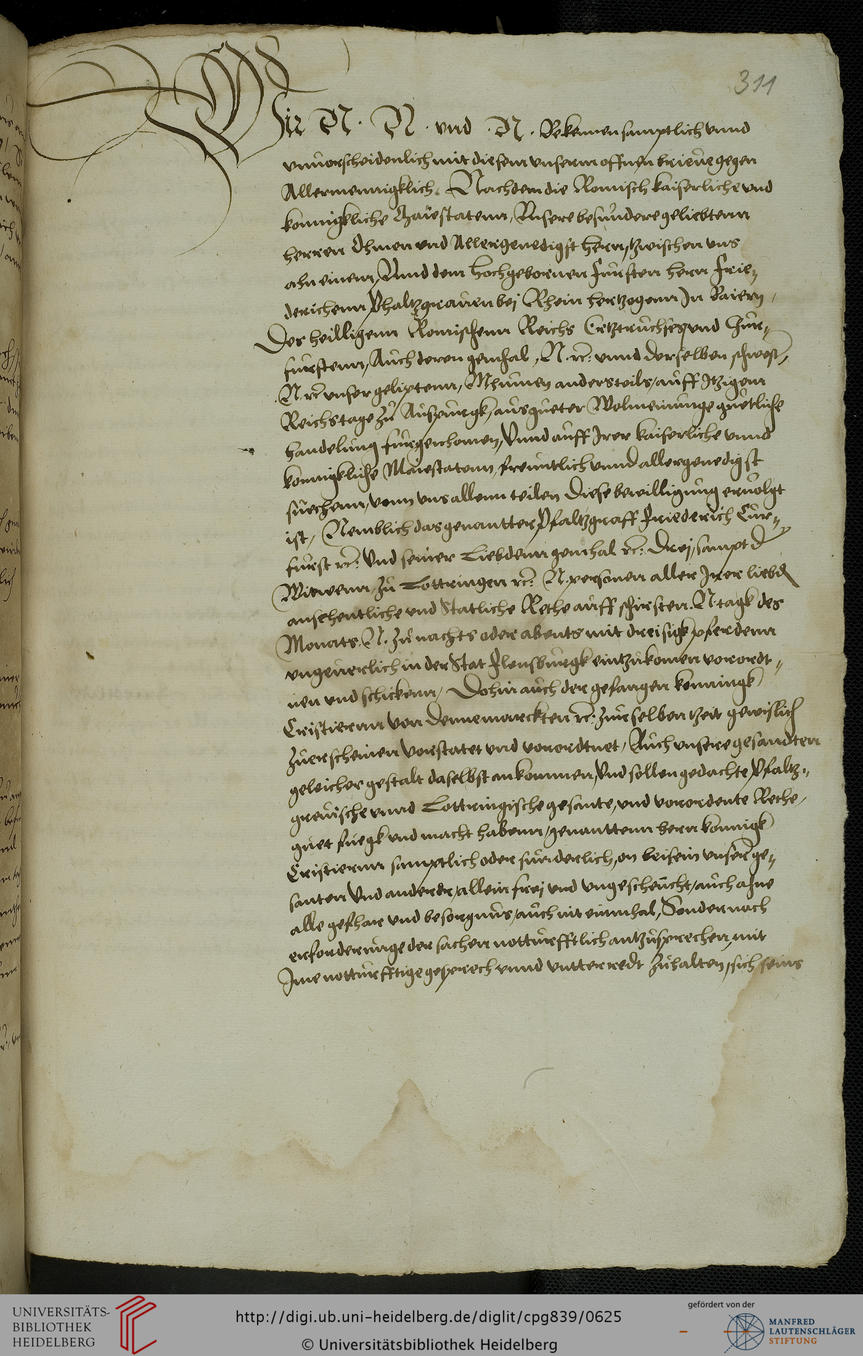 311
Wir N. N. vnd N. Bekennen samptlich vnnd
vnuorscheidenlich mit diesem vnserm offnen brieue gegen
Allermennigklich. Nachdem die Romisch kaiserliche vnd
konnigkliche Maiestatenn, Vnsere besundere geliebtenn
herren Ohmen vnd Allergenedigst hern, zwischen vns
ahn einem, Vnnd dem Hochgebornen Fursten hern Frie-
derichenn Phaltzgrauen bei Rhein hertzogenn In Baiern,
Des heilligenn Romischenn Reichs Ertztruchses vnd Chur-
furstenn, Auch deren gemhal, N. rc. vnnd derselben schwest,
N. rc. vnser geliptenn, Mhumen andersteils, auff Itzigem
Reichstage zu Augspurgk, aus gueter Wolmeinunge guetliche
handelung furgenhomen, Vnnd auff Irer kaiserliche vnnd
konnigkliche Maiestatenn, freuntlich vnnd allergenedigst
suechenn, vonn vns allenn teilen diese bewilligung eruolgt
ist, Nemblich das genantter Pfaltzgraff Friederich Cur-
furst rc. Vnd seiner Liebdenn gemhal rc. Drei, sampt d
Witwenn, zu Lottringen rc. N. personen aller Irer liebd
ansehentliche vnd Statliche Rethe auff schirsten N. tagk des
Monats N. zu nachts oder abents mit dreisigk pferdenn
vngeuerlich in der Stat Flensburgk eintzukomen verordt-
nen vnd schickenn, Dohin auch der gefangen konnigk
Cristiernn von Dennemarckten rc. zur selben tzeit gewislich
zuerscheinen verstatet vnd verordtnet, Auch vnsere gesandten
geleicher gestalt daselbst ankommen, Vnd sollen gedachte Pfaltz-
greuische vnnd Lottringische gesante, vnd verordente Rethe,
guet fuegk vnd macht habenn, genanttenn hern konnigk
Cristiernn samptlich oder sunderlich, on beisein vnser ge-
santen Vnd anderer, allein frei vnd vngescheucht, auch ahne
alle gefhar vnd besorgnus, auch nit einmhal, Sonder nach
erforderunge der sachen notturfftlich antzusprechen, mit
Ime notturfftige gesprech vnnd vntterredt zuhalten, sich seins
UNIVERSITÄTS-
BIBLIOTHEK
HEIDELBERG
http://digi.ub.uni-heidelberg.de/diglit/cpg839/0625
© Universitätsbibliothek Heidelberg
gefördert von der
MANFRED
LAUTENSCHLÄGER
STIFTUNG